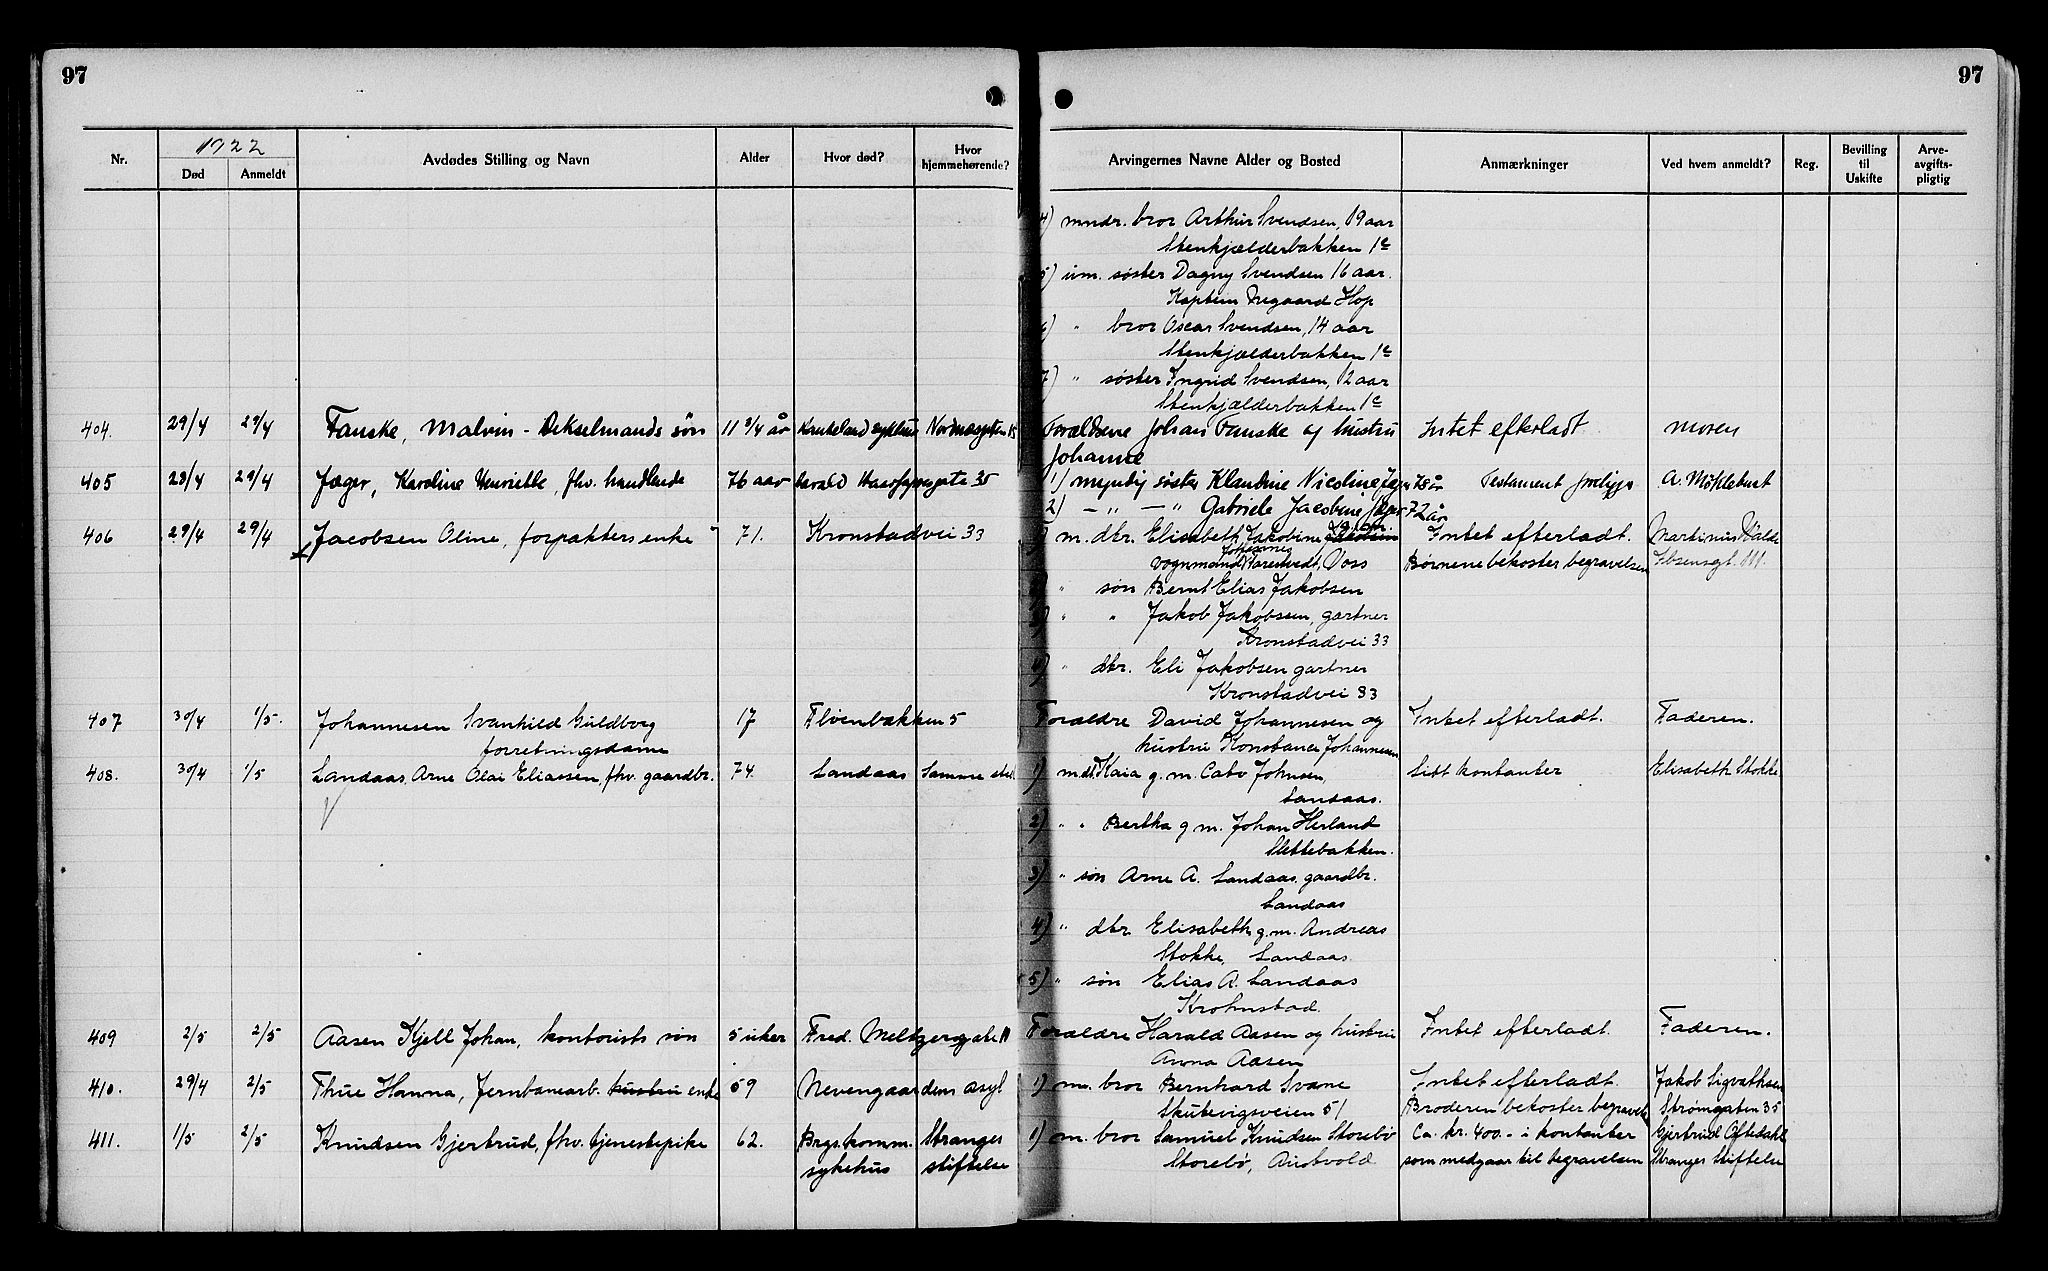 97
97
Nr.
1922
Død
Anmeldt
Avdødes Stilling og Navn
Alder
Hvor død?
Hvor hjemmehørende?
Arvingernes Navne Alder og Bosted
Anmærkninger
Ved hvem anmeldt?
Reg.
Bevilling til Uskifte
Arve-avgifts-pligtig
4) mndr. bror Arthur Svendsen, 19 aar
Stenkjælderbakken 1c
5) um. søster Dagny Svendsen 16 aar.
Kaptein Hop
6) " bror Oscar Svendsen, 14 aar
Stenkjælderbakken 1c
7) " søster Ingrid Svendsen, 12 aar
Stenkjælderbakken 1c
404. 29/4 29/4 Fanske, Malvin - søn 11 3/4 år Haukeland sykehus 15 Forældrene Johan Fanske og hustru Intet efterladt moren
Johanne
405 29/4 29/4 Jæger, Karoline Henriette, fhv. handlende 76 aar Harald Haarfagresgate 35 1) myndig søster Klaudine Nicoline Jæger 78 år Testament foreligger A. Møklebust
2) - " - " Gabriele Jacobine Jæger 72 år
406 29/4 29/4 Jacobsen Oline, forpakters enke 71. Kronstadvei 33 1) m. dtr. Elisabeth Jakobine Jakobsen g. m. Intet efterladt. Martinius
vognmand Johannes Voss Børnene bekoster begravelsen Ibsensgt. 111.
" søn Bernt Elias Jakobsen
" " Jakob Jakobsen, gartner
Kronstadvei 33
4) " dtr. Eli Jakobsen gartner
Kronstadvei 33
407 30/4 1/5. Johannesen Svanhild Guldborg 17 Fløienbakken 5 Forældre David Johannesen og Intet efterladt. Faderen.
forretningsdame hustru Konstance Johannesen
408. 30/4 1/5 Landaas Arne Olai Eliassen, fhv. gaardbr. 74. Landaas Samme sted 1) m. dt. Kaia g. m. Cato Johnsen, Litt kontanter Elisabeth Stokke
Landaas.
2) " " Bertha g m. Johan Herland
Slettebakken.
3) " søn Arne A. Landaas, gaardbr.
Landaas
4) " dtr Elisabeth g. m. Andreas
Stokke, Landaas
5) " søn Elias A. Landaas
Krohnstad.
409 2/5 2/5 Aasen Kjell Johan, kontorists søn 5 uker Fred. Meltzersgate 11 Forældre Harald Aasen og hustru Intet efterladt. Faderen.
Anna Aasen
410. 29/4 2/5 Thue Hanna, jernbanearb. hustru enke 59 Nevengaardens asyl 1) m. bror Bernhard Svane Intet efterladt. Jakob Sigvathsen
Skutevigsveien 51 Broderen bekoster begravelse Strømgaten 35
411. 1/5 2/5 Knudsen Gjertrud, fhv. tjenestepike 62. Brgs. komm. Stranges 1) m. bror Samuel Knudsen Storebø Ca. kr. 400.- i kontanter Gjertrud Oftedahl
sykehus stiftelse Storebø, Austvold som medgaar til begravelsen Stranges Stiftelse